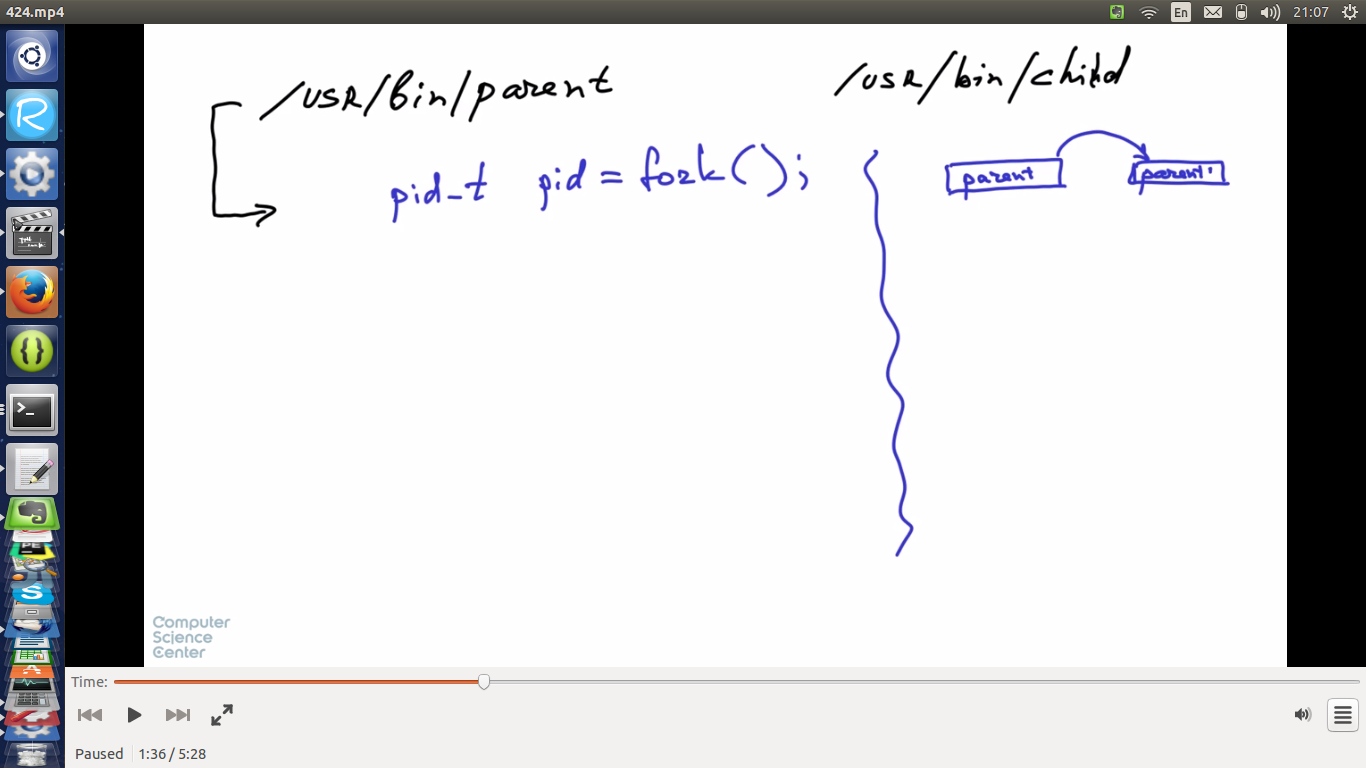 424.mp4
En
21:07
/usr/bin/parent
/usr/bin/child
pid_t pid = fork();
parent
parent'
Computer
Science
Center
Time:
Paused 1:36 / 5:28